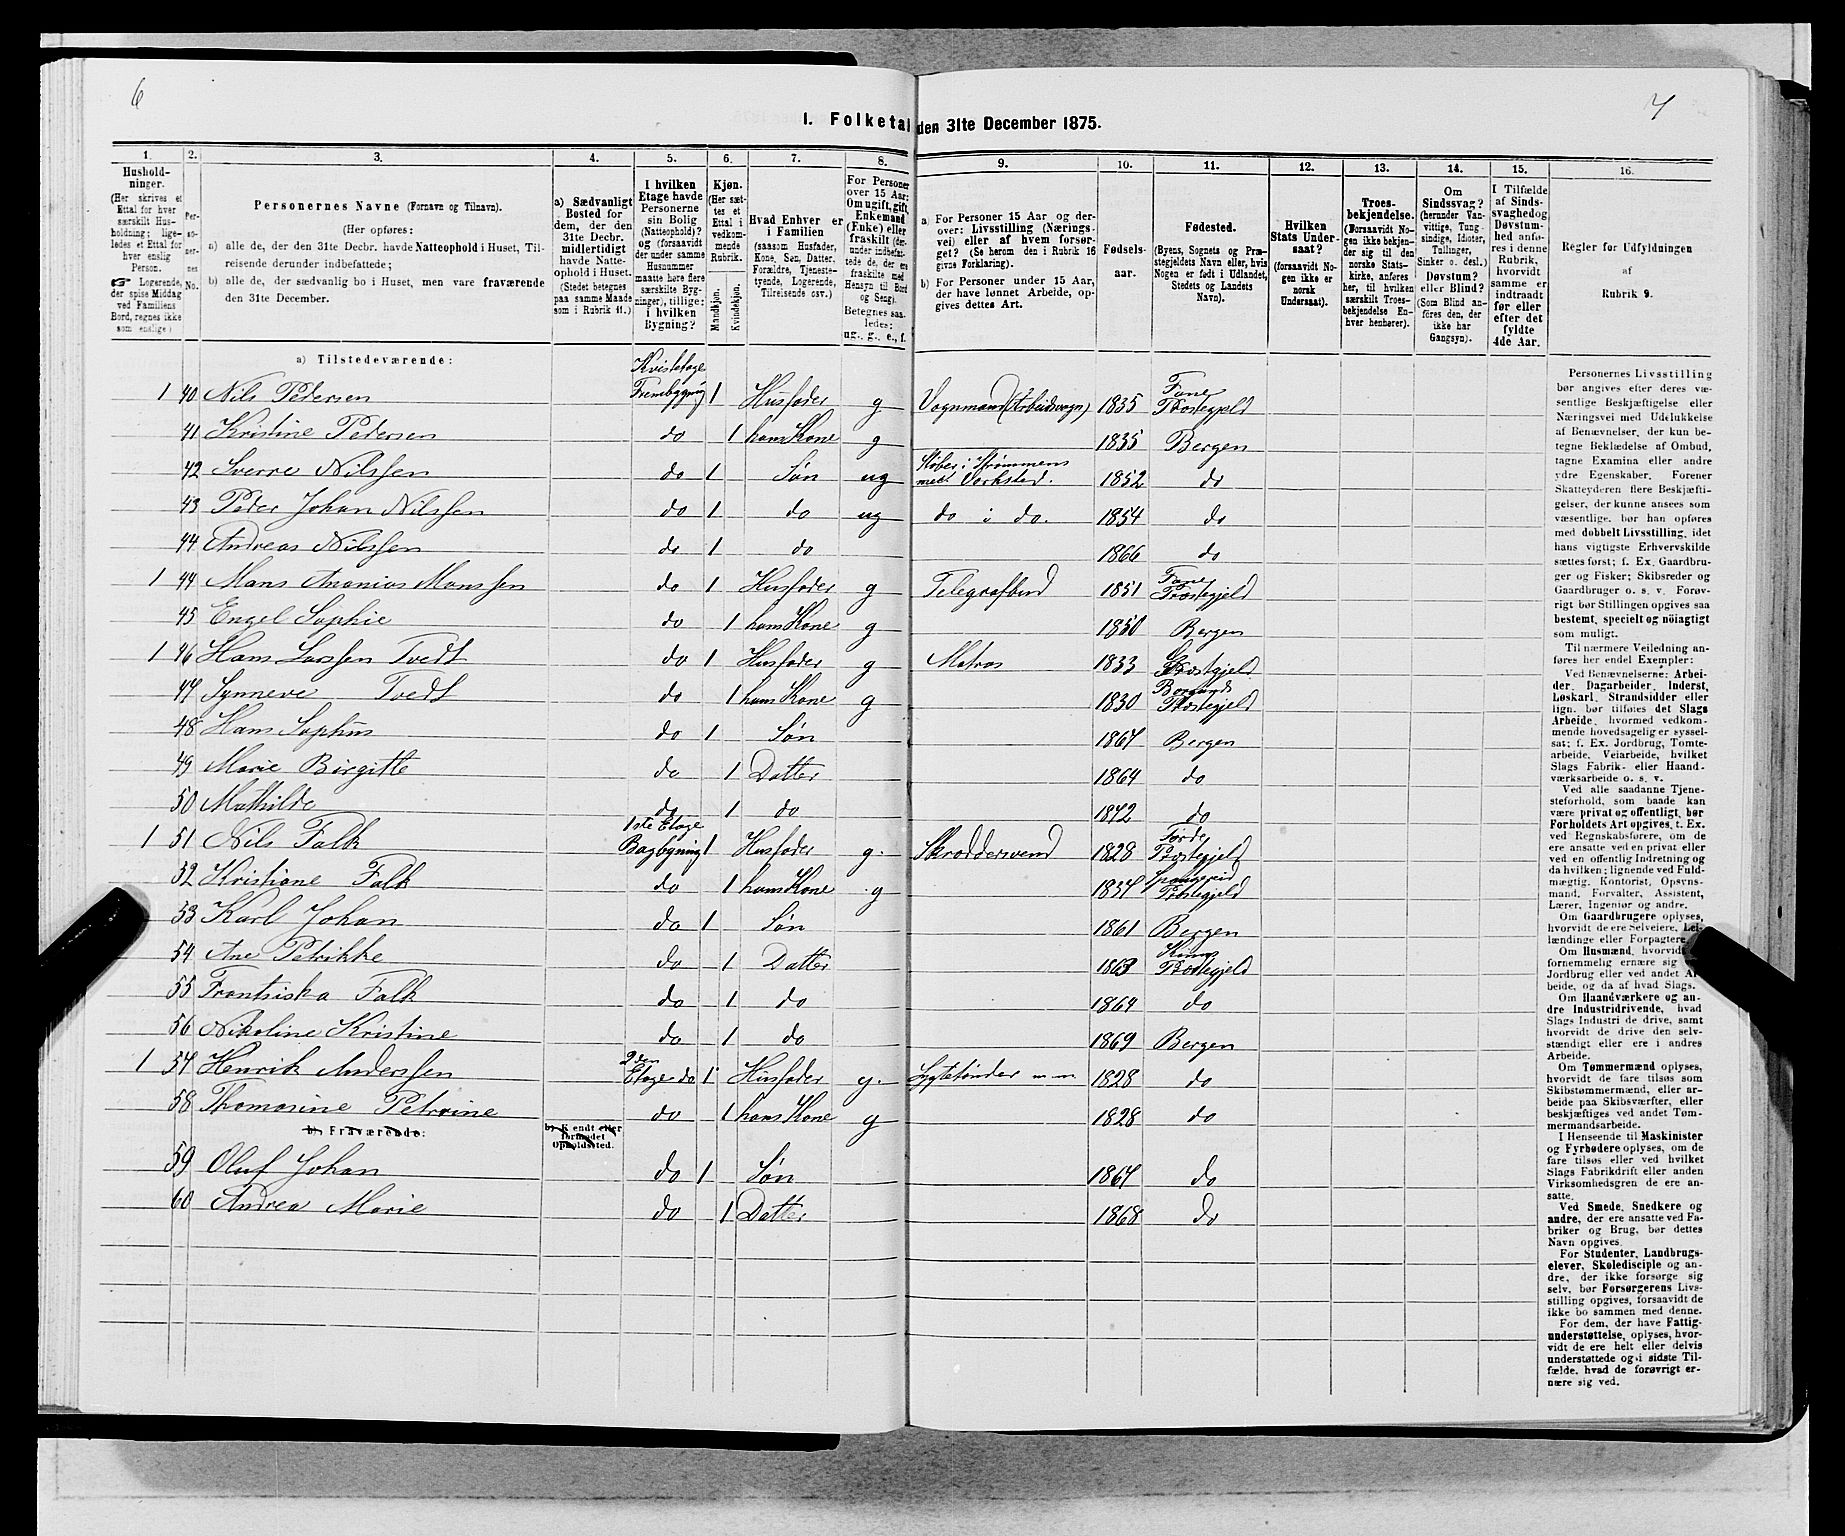 6
7
1. Folketal den 31te December 1875.
1. 2. 3. 4. 5. 6. 7. 8. 9. 10. 11. 12. 13. 14. 15. 16.
Hushold-
ninger.
(Her skrives et
Ettal for hver
særskilt Hus-
holdning; lige-
ledes et Ettal for
hver enslig
Person.
Logerende,
der spise Middag
ved Familiens
Bord, regnes ikke
som enslige)
Per-
so-
ner-
nes
No.
Personernes Navne (Fornavn og Tilnavn).
(Her opføres:
a) alle de, der den 31te Decbr. havde Natteophold i Huset, Til-
reisende derunder indbefattede;
b) alle de, der sædvanlig bo i Huset, men vare fraværende
den 31te December.
a) Sædvanligt
Bosted for
dem, der den
31te Decbr.
midlertidigt
havde Natte-
ophold i Huset.
(Stedet betegnes
paa samme Maade
som i Rubrik 11.)
I hvilken
Etage havde
Personerne
sin Bolig
(Natteophold)?
og (forsaavidt
der under samme
Husnummer
maatte høre flere
særskilte Byg-
ninger), tillige:
i hvilken
Bygning?
Kjøn.
(Her sæt-
tes et
Ettal i
vedkom-
mende
Rubrik.
Mandkjøn.
Kvindekjøn.
Hvad Enhver er
i Familien
(saasom Husfader,
Kone, Søn, Datter.
Forældre, Tjeneste-
tyende, Logerende,
Tilreisende osv.)
For Personer
over 15 Aar:
Om ugift, gift,
Enkemand
(Enke) eller
fraskilt (der-
under indbefat-
tede de, der ere
fraskilte med
Hensyn til Bord
og Seng).
Betegnes saa-
ledes:
ug., g., e., f.
a) For Personer 15 Aar og der-
over: Livsstilling (Nærings-
vei) eller af hvem forsør-
get? (Se herom den i Rubrik 16
givne Forklaring).
b) For Personer under 15 Aar,
der have lønnet Arbeide, op-
gives dettes Art.
Fødsels-
aar.
Fødested.
(Byens, Sognets og Præ-
stegjeldets Navn eller, hvis
Nogen er født i Udlandet,
Stedets og Landets
Navn).
Hvilken
Stats Under-
saat?
(forsaavidt No-
gen ikke er
norsk
Undersaat).
Troes-
bekjendelse.
(Forsaavidt No-
gen ikke bekjen-
der sig til den
norske Stats-
kirke, anføres
her, til hvilken
særskilt Troes-
bekjendelse En-
hver henhører).
Om
Sindssvag?
(herunder Van-
vittige, Tung-
sindige, Idioter,
Tullinger,
Sinker o. desl.)
Døvstum?
eller Blind?
(Som Blind an-
føres den, der
ikke har
Gangsyn).
I Tilfælde
af Sinds-
svaghed og
Døvstum-
hed anfø-
res i denne
Rubrik,
hvorvidt
samme er
indtraadt
før eller
efter det
fyldte
4de Aar.
Regler for Udfyldningen
af
Rubrik 9.
a) Tilstedeværende:
1 40 Nils Pedersen Kvistetage Frembygnig 1 Husfader g Vognmand (Arbeidsvogn) 1835 Fane Præstegjeld
41 Kristine Pedersen do 1 hans Kone g 1835 Bergen
42 Sverre Nilssen do 1 Søn ug i Strømmens mek Værksted. 1852 do
43 Peder Johan Nilssen do 1 do ug do i do. 1854 do
44 Andreas Nilssen do 1 do 1866 do
1 44 Mans Ananias Monssen do 1 Husfader g Telegrafbud 1851 Fane Præstegjeld
45 Engel Sophie do 1 hans Kone g 1850 Bergen
1 46 Hans Larssen Tvedt do 1 Husfader g Matros 1833 Præstegjeld
47 Synneve Tvedt do 1 hans Kone g 1830 Borgunds Præstegjeld
48 Hans Sophus do 1 Søn 1867 Bergen
49 Marie Birgitte do 1 Datter 1864 do
50 Mathilde do 1 do 1872 do
1 51 Nils Falk 1ste Etage Bagbygning 1 Husfader g. Skræddersvend 1828 Førde Præstegjeld
52 Kristiane Falk do 1 hans Kone g 1834 Præstegjeld
53 Karl Johan do 1 Søn 1861 Bergen
54 Ane Petrikke do 1 Datter 1863 Kinns Præstegjeld
55 Frantsiska Falk do 1 do 1864 do
56 Nikoline Kristine do 1 do 1869 Bergen
1 57 Henrik Anderssen 2den Etage do 1 Husfader g. Lygtetænder 1828 do
58 Thomasine Petrine do 1 hans Kone g 1828 do
b) Fraværende:
b) Kjendt eller
formodet
Opholdssted.
59 Oluf Johan do 1 Søn 1867 do
60 Andrea Marie do 1 Datter 1868 do
Personernes Livsstilling
bør angives efter deres væ-
sentlige Beskjæftigelse eller
Næringsvei med Udelukkelse
af Benævnelser, der kun be-
tegne Beklædelse af Ombud,
tagne Examina eller andre
ydre Egenskaber. Forener
Skatteyderen flere Beskjæfti-
gelser, der kunne ansees som
væsentlige, bør han opføres
med dobbelt Livsstilling, idet
hans vigtigste Erhvervskilde
sættes først; f. Ex. Gaardbru-
ger og Fisker; Skibsreder og
Gaardbruger o. s. v. Forøv-
rigt bør Stillingen opgives saa
bestemt, specielt og nøiagtigt
som muligt.
Til nærmere Veiledning an-
føres her endel Exempler:
Ved Benævnelserne: Arbei-
der, Dagarbeider, Inderst,
Løskarl, Strandsidder eller
lign. bør tilføies det Slags
Arbeide, hvormed vedkom-
mende hovedsagelig er syssel-
sat; f. Ex. Jordbrug, Tomte-
arbeide, Veiarbeide, hvilket
Slags Fabrik- eller Haand-
værksarbeide o. s. v.
Ved alle saadanne Tjene-
steforhold, som baade kan
være privat og offentligt, bør
Forholdets Art opgives, t. Ex.
ved Regnskabsførere, om de
ere ansatte ved en privat eller
ved en offentlig Indretning og
da hvilken; lignende ved Fuld-
mægtig, Kontorist, Opsyns-
mand, Forvalter, Assistent,
Lærer, Ingeniør og andre.
Om Gaardbrugere oplyses,
hvorvidt de ere Selveiere, Lei-
lændinge eller Forpagtere.
Om Husmænd, hvorvidt
fornemmelig ernære sig
Jordbrug eller ved andet Ar-
beide, og da af hvad Slags.
Om Haandværkere og an-
dre Industridrivende, hvad
Slags Industri de drive, samt
hvorvidt de drive den selv-
stændigt eller ere i andres
Arbeide.
Om Tømmermænd oplyses,
hvorvidt de fare tilsøs som
Skibstømmermænd, eller ar-
beide paa Skibsværfter, eller
beskjæftiges ved andet Tøm-
mermandsarbeide.
I Henseende til Maskinister
og Fyrbødere oplyses, om de
fare tilsøs eller ved hvilket
Slags Fabrikdrift eller anden
Virksomhedsgren de ere an-
satte.
Ved Smede, Snedkere og
andre, der ere ansatte ved Fa-
briker og Brug, bør dettes
Navn opgives.
For Studenter, Landbrugs-
elever, Skoledisciple og an-
dre, der ikke forsørge sig
selv, bør Forsørgerens Livs-
stilling opgives, forsaavidt de
ikke bo sammen med denne.
For dem, der have Fattig-
understøttelse, oplyses, hvor-
vidt de ere helt eller delvis
understøttede og i sidste Til-
fælde, hvad de forøvrigt er-
nære sig ved.